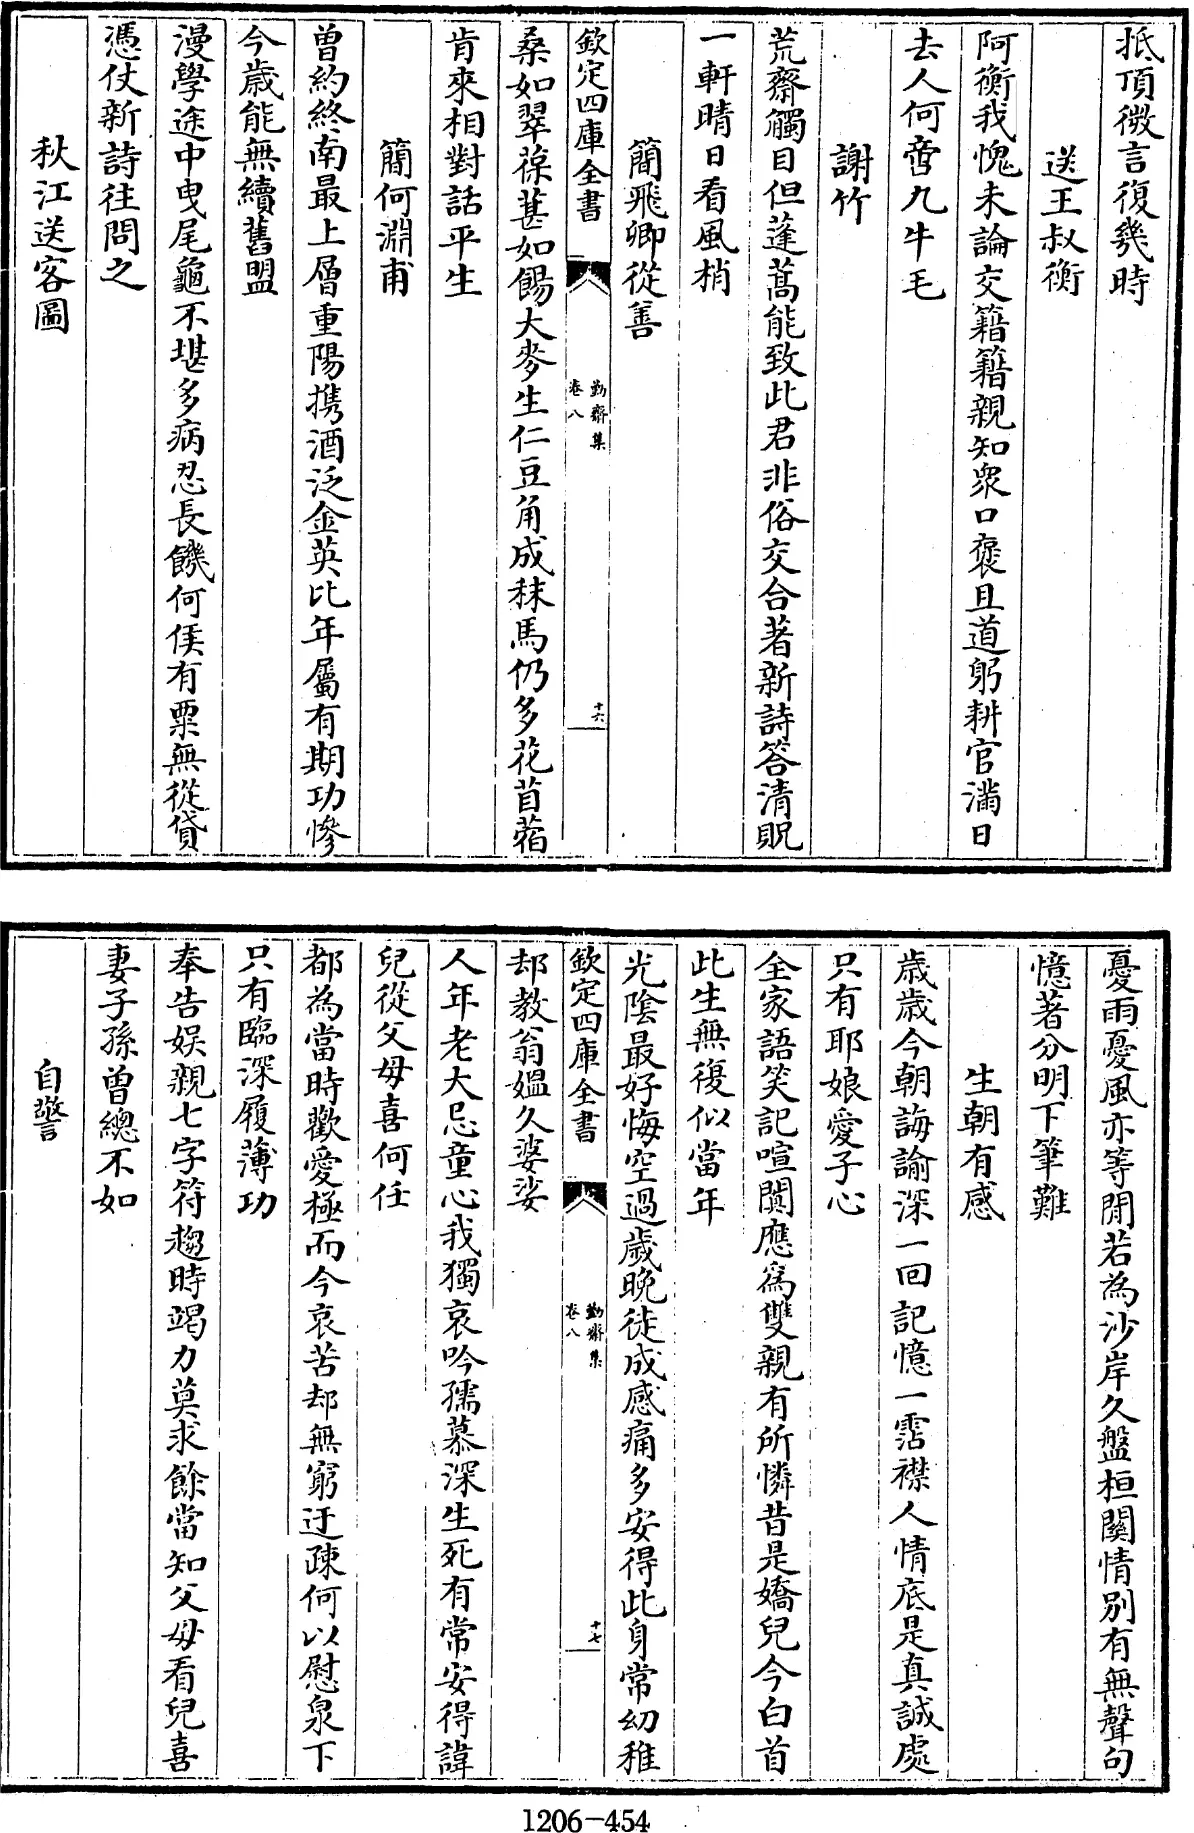 抵頂微言復幾時
送王叔衡
阿衡我愧未論交籍籍親知衆口褒且道躬耕官滿日
去人何啻九牛毛
謝竹
荒齋觸目但蓬蒿能致此君非俗交合著新詩答清貺
一軒晴日看風梢
簡飛卿從善
欽定四庫全書
勤齋集
卷八
十六
桑如翠葆葚如餳大麥生仁豆角成秣馬仍多花苜蓿
肯來相對話平生
簡何淵甫
曾約終南最上層重陽携酒泛金英比年屬有期功慘
今歲能無續舊盟
漫學途中曳尾龜不堪多病忍長饑何侯有粟無從貸
憑仗新詩往問之
秋江送客圖
憂雨憂風亦等閒若為沙岸久盤桓關情別有無聲句
憶著分明下筆難
生朝有感
歲歲今朝誨諭深一回記憶一霑襟人情底是真誠處
只有耶娘愛子心
全家語笑記喧闐應爲雙親有所憐昔是嬌兒今白首
此生無復似當年
光陰最好悔空過歲晚徒成感痛多安得此身常幼稚
却教翁媼久婆娑
欽定四庫全書
勤齋集
卷八
十七
人年老大忌童心我獨哀吟孺慕深生死有常安得諱
兒從父母喜何任
都為當時歡愛極而今哀苦却無窮迂疎何以慰泉下
只有臨深履薄功
奉告娱親七字符趨時竭力莫求餘當知父母看兒喜
妻子孫曾總不如
自警
1206-454